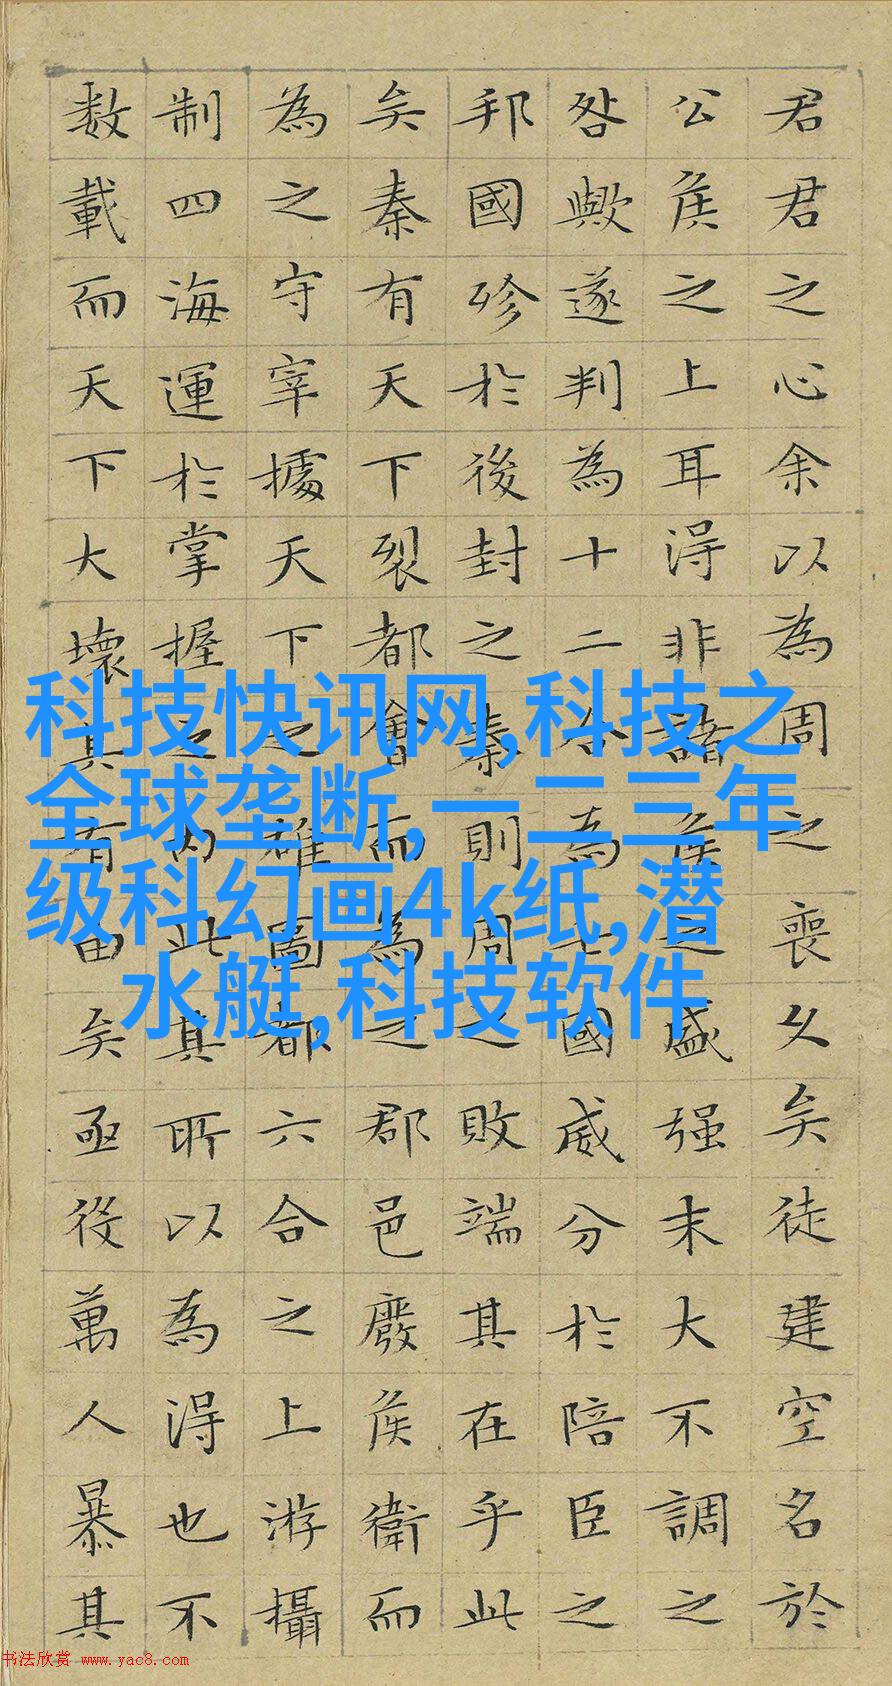 君君之心余以為周之喪久矣徒建空名於
公侯之上耳得非諸侯之盛强末大不調之
咎歟遂判為十二合為七國威分於陪臣之
邦國殄於後封之秦則周之敗端其在乎此
矣秦有天下裂都會而為之郡邑廢侯衛而
為之守宰據天下之雄圖都六合之上游攝
制四海運於掌握之內此其所以為得也不
数載而天下大壞其有由矣亟役萬人暴其
科技快讯网,科技之
全球垄断,一二三年
级科幻画4k纸,潜
水艇,科技软件
书法欣赏 www.yac8.com